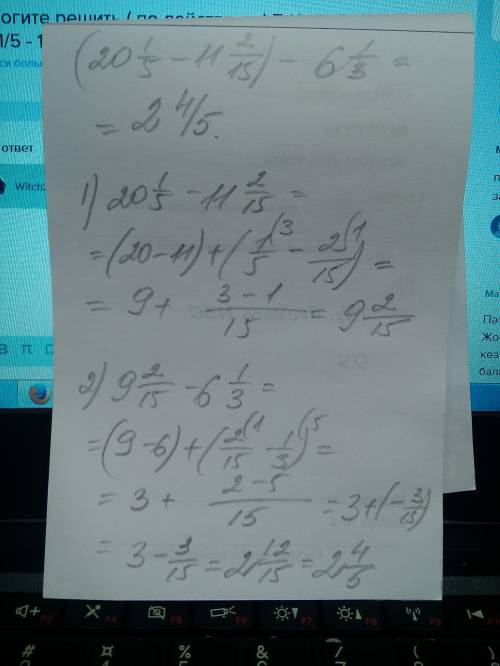 огите решить ( по действ
1/5 - 1
си боль
ответ
Witch2
(20 1/5 - 11 2/15) - 6 1/3 =
= 2 4/5.
1) 20 1/5 - 11 2/15 =
= (20 - 11) + (1/5 (3 - 2/15 (1) =
= 9 + 3 - 1 / 15 = 9 2/15
2) 9 2/15 - 6 1/3 =
= (9 - 6) + (2/15 (1 - 1/3) (5 =
= 3 + 2 - 5 / 15 = 3 + (- 3/15)
= 3 - 3/15 = 2 12/15 = 2 4/5
Ма
Жо
кез
бала
F5
F6
F7
F8
F9
F10
%
&
/
(